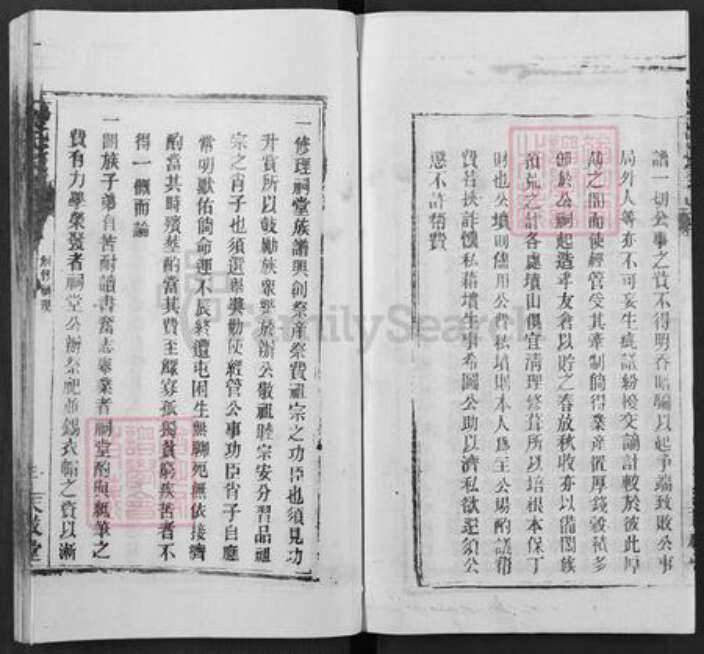 譜一切公事之資不得明吞暗騙以起爭端致敗公事
局外人等亦不可妄生疵議紛擾交謫計較於彼此厚
薄之間而使經管受其牽制倘得業產置厚錢穀積多
即於公祠起造義倉以貯之春放秋收亦以備闔族
荒之計各處墳山俱宜清理修葺所以培根本保丁
財也公墳則儘用公費私墳則本人為主公場酌議帮
費若挾詐懷私藉墳生事希圖公助以濟私欲記須公
懲不許帮費
一修理祠堂族譜興創祭產祭費祖宗之功臣也須見功
升賞所以鼓勵族衆至於辦公敬祖睦宗安分習品祖
宗之肖子也須選舉獎勸使經管公事功臣肖子自應
常明獻佑倘命運不辰終遭屯困生無聊死無依接濟
酌當其時殯葬酌當其費至鰥寡孤獨貧窮疾苦者不
得一概而論
一闔族子弟自苦耐讀書奮志舉業者祠堂酌與紙筆之
費有力學榮發者祠堂公辦祭祀並錫衣帽之資以漸
FamilySearch